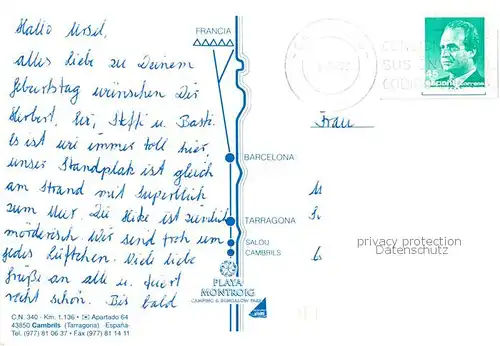 Hallo Ursel,
alles liebe zu Deinem
Geburtstag wünschen Dir
Herbert, Evi, Steffi u. Basti.
Es ist wie immer toll hier,
unser Standplatz ist gleich
am Strand mit Superblick
zum Meer. Die Hitze ist ziemlich
mörderisch. Wir sind froh um
jedes Lüftchen. Viele liebe
Grüße an alle u. feiert
recht schön. Bis bald
FRANCIA
BARCELONA
TARRAGONA
SALOU
CAMBRILS
PLAYA
MONTROIG
CAMPING & BUNGALOW PARK
C.N. 340 - Km. 1.136 • Apartado 64
43850 Cambrils (Tarragona) España
Tel. (977) 81 06 37 • Fax (977) 81 14 11
45
Frau
privacy protection
Datenschutz